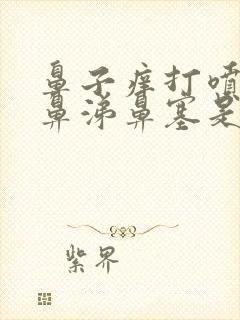 鼻子痒打喷
鼻涕鼻塞是
紫界